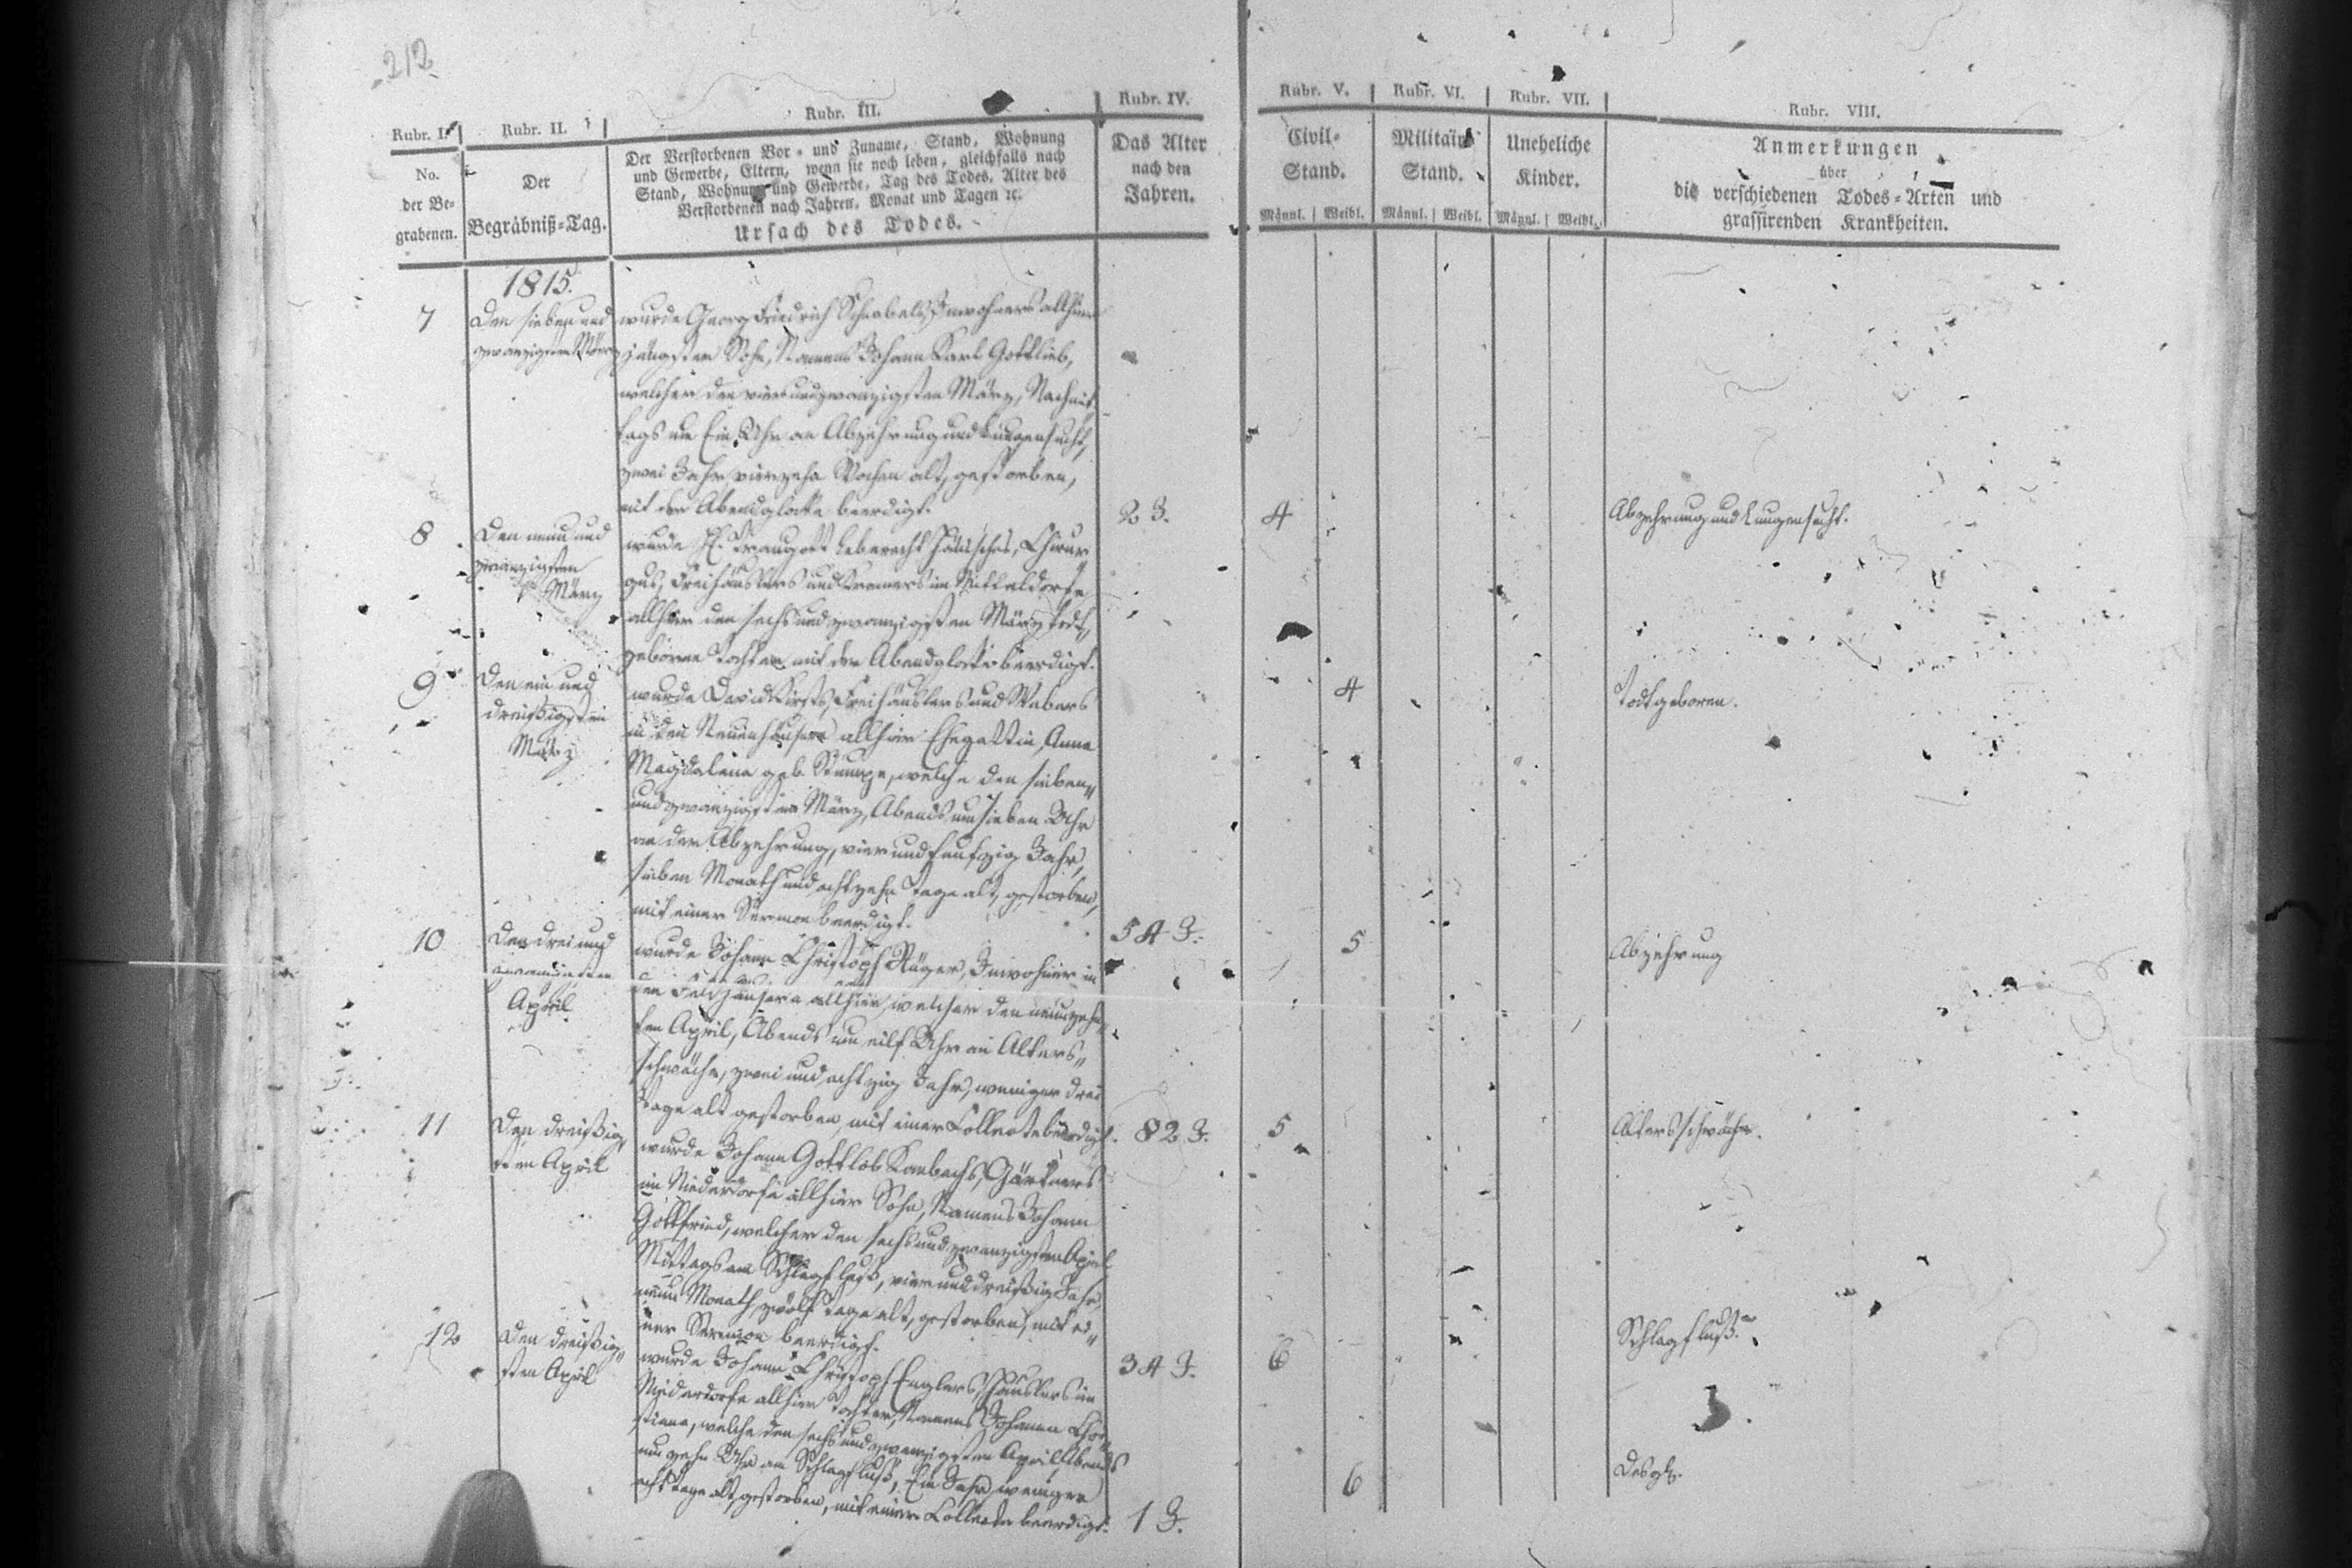 212
Rubr. I. Rubr. II. Rubr. III. Rubr. IV. Rubr. V. Rubr. VI. Rubr. VII. Rubr. VIII.
No.
der Be-
grabenen.
Der
Begräbniß-Tag.
Der Verstorbenen Vor- und Zuname, Stand, Wohnung
und Gewerbe, Eltern, wenn sie noch leben, gleichfalls nach
Stand, Wohnung und Gewerbe, Tag des Todes, Alter des
Verstorbenen nach Jahren, Monat und Tagen ꝛc.
Ursach des Todes.
Das Alter
nach den
Jahren.
Civil-
Stand.
Männl. Weibl.
Militair
Stand.
Männl. Weibl.
Uneheliche
Kinder.
Männl. Weibl.
Anmerkungen
über
die verschiedenen Todes-Arten und
grassirenden Krankheiten.
1815.
7
Den sieben und
zwanzigsten März
wurde Georg Friedrich Inwohners allhier
jüngster Sohn, Namens Johann Karl Gottlieb,
welcher den vier und zwanzigsten März, Nachmit
tags um Ein Uhr an Abzehrung und Lungensucht,
zwei Jahr vierzehn Wochen alt, gestorben,
mit der Abendglocke beerdigt.
2 J.
4
Abzehrung und Lungensucht.
8
Den neun und
zwanzigsten
März
wurde H. Traugott Leberecht Chirur
gus, Freihäuslers und Kramers im Mitteldorfe
allhier den sechs und zwanzigsten März todt
geborne Tochter mit der Abendglocke beerdigt.
4
Todtgeboren.
9
Den ein und
dreißigsten
März
wurde David Freihäuslers und Webers
in den Neuenhäusern allhier Ehegattin, Anna
Magdalena geb. Stumpe, welche den sieben
und zwanzigsten März, Abends um sieben Uhr
an der Abzehrung, vier und funfzig Jahr,
sieben Monath und achtzehn Tage alt, gestorben,
mit einer Sermon beerdigt.
54 J.
5
Abzehrung
10
Den drei und
zwanzigsten
April
wurde Johann Christoph Rüger, Inwohner in
den Feldhäusern allhier, welcher den neunzehn
ten April, Abends um eilf Uhr an Alters
schwäche, zwei und achtzig Jahr, weniger drei
Tage alt gestorben, mit einer Collecte beerdigt.
82 J.
5
Altersschwäche.
11
Den dreißig
sten April
wurde Johann Gottlob Gärtners
im Niederdorfe allhier Sohn, Namens Johann
Gottfried, welcher den sechs und zwanzigsten April
Mittags am Schlagfluß, vier und dreißig Jahr,
neun Monath, zwölf Tage alt, gestorben, mit ei
ner Sermon beerdigt.
34 J.
6
Schlagfluß.
12
Den dreißig
sten April
wurde Johann Christoph Englers, Häuslers im
Niederdorfe allhier Tochter, Namens Johanne Chri
stiane, welche den sechs und zwanzigsten April, Abends
um zehn Uhr am Schlagfluß, Ein Jahr weniger
acht Tage alt, gestorben, mit einer Collecte beerdigt.
1 J.
6
Desgl.